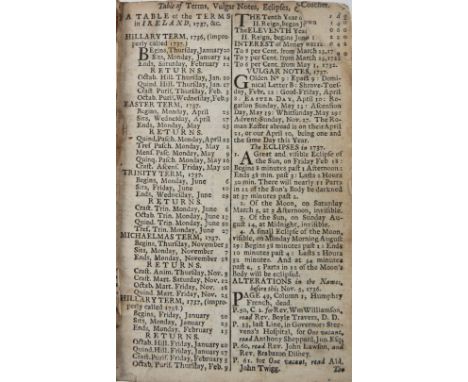 Table of Terms, Vulgar Notes, Eclipses, &
A TABLE of the TERMS
in IRELAND, 1737, &c.
HILLARY TERM, 1736, (impro-
perly called 1737.)
Begins, Thursday, January 20
Sits, Monday, January 24
Ends, Saturday, February 12
RETURNS.
Octab. Hill. Thursday, Jan. 20
Quind. Hill. Thursday, Jan. 27
Crast. Purif. Thursday, Feb. 3
Octab. Purif. Wednesday, Feb. 9
EASTER TERM, 1737.
Begins, Wednesday, April 27
Ends, Monday, May 23
RETURNS.
Quind. Pasch. Monday, April 25
Tres Pasch. Monday, May 2
Mens. Pasc. Monday, May 9
Quinq. Pasch. Monday, May 16
Crast. Ascens. Friday, May 20
TRINITY TERM, 1737.
Begins, Monday, June 6
Sits, Friday, June 10
Ends, Wednesday, June 29
RETURNS.
Crast. Trin. Monday, June 6
Octab. Trin. Monday, June
Quind. Trin. Monday, June
Tres. Trin. Monday, June 27
MICHAELMAS TERM, 1737.
Begins, Thursday, November 3
Sits, Monday, November 7
Ends, Monday, November 28
RETURNS.
Crast. Anim. Thurs. Nov. 3
Crast. Mart. Saturd. Nov. 12
Octab. Mart. Friday, Nov. 18
Quind. Mart. Friday, Nov. 25
HILLARY TERM, 1737, (impro-
perly called 1738.)
Begins, Friday, January
Sits, Monday, January 23
Ends, Monday, February
RETURNS.
Octab. Hill. Friday, January 20
Quind. Hill. Friday, January 27
Crast. Purif. Friday, February 3
Octab. Purif. Thursday, Feb. 9
THE Tenth Year
H. Reign, begins
The ELEVENTH Year
H. Reign, begins June
INTEREST of Money
To 8 per Cent. from March 25,
To 7 per Cent. from March 25, 1722
To 6 per Cent. from May 1, 1732.
VULGAR NOTES, 1737.
GOlden No 9: Epact 9: Domi-
nical Letter B: Shrove-Tues-
day, Febr. 22: Good-Friday, April
8: EASTER DAY, April 10: Ro-
gation Sunday, May 15: Ascension
Day, May 19: Whitsunday, May 29:
Advent Sunday, Nov. 27. The Ro-
man Easter abroad is on their April
21, or our April 10, being one and
the same Day this Year.
The ECLIPSES in 1737.
1. A Great and visible Eclipse of
the Sun, on Friday Feb 18:
Begins 2 minutes past 1 Afternoon:
Ends 32 min. past 3: Lasts 2 Hours
30 min. There will nearly 11 Parts
in 12 of the Sun's Body be darkened
at 37 minutes past 2.
2. Of the Moon, on Saturday
March 5, at 3 Afternoon, invisible.
3. Of the Sun, on Sunday Au-
gust 14, at Midnight, invisible.
4. A small Eclipse of the Moon,
visible, on Monday Morning August
29: Begins 38 minutes past 2: Ends
10 minutes past 4: Lasts 1 Hours
32 minutes. And at 24 minutes
past 3, 5 Parts in 12 of the Moon's
Body will be eclipsed.
ALTERATIONS in the Names,
before this Nov. 5, 1736.
PAGE 49, Column 1, Humphry
French, dead.
P. 50, C. 2. for Rev. Wm Williamson,
read Rev. Boyle Travers, D. D.
P. 55, last Line, in Governors Stee-
vens's Hospital, for One vacant,
read Anthony Sheppard, Jun. Esq;
P. 60, read Rev. John Lawson, and
Rev. Brabazon Disney.
P. 61. for One vacant, read Ald.
John Twigg.
The